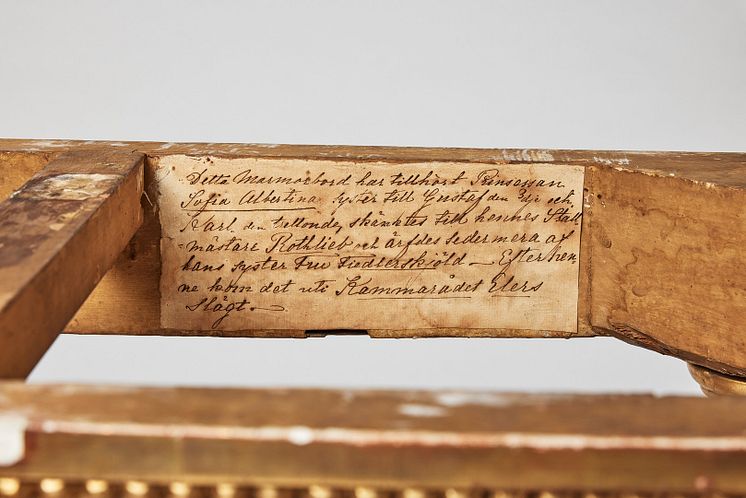 Detta Marmorbord har tillhört Prinsessan
Sofia Albertina, syster till Gustaf den 3dje och
Karl den trettonde, skänktes till hennes Stall
=mästare Rothlieb och ärfdes sedermera af
hans syster Fru Fiedlerskjöld — Efter hen
ne kom det uti Kammarådet Elers
Slägt. —